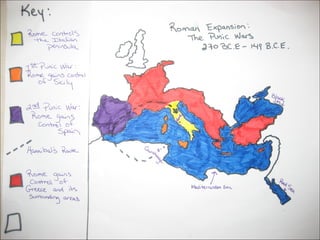 Key:
Rome controls
the Italian
peninsula
1st Punic War:
Rome gains control
of Sicily
2nd Punic War:
Rome gains
control of
Spain
Hannibal's Route
Rome gains
control of
Greece and its
surrounding areas
Roman Expansion:
The Punic Wars
270 B.C.E - 149 B.C.E.
Black
Sea
Mediterranean Sea
Red Sea